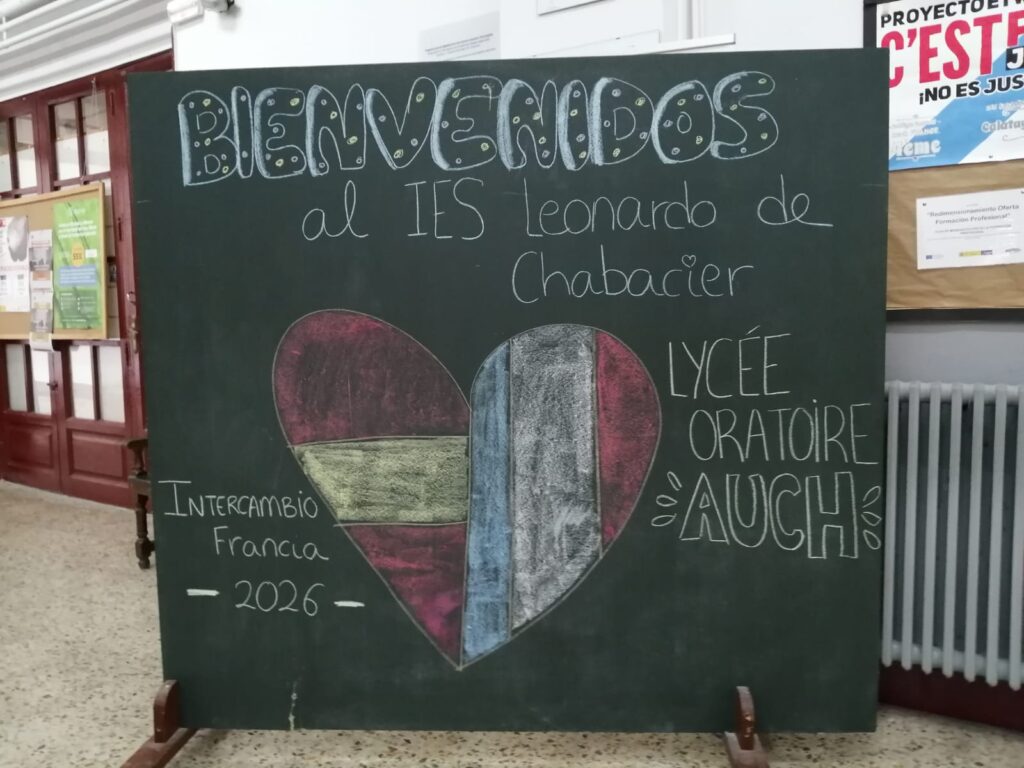 BIENVENIDOS
al IES Leonardo de
Chabacier
LYCÉE
ORATOIRE
AUCH
INTERCAMBIO
Francia
- 2026 -
PROYECTO
C'EST
¡NO ES JUS
"Redimensionamiento Oferta
Formación Profesional"